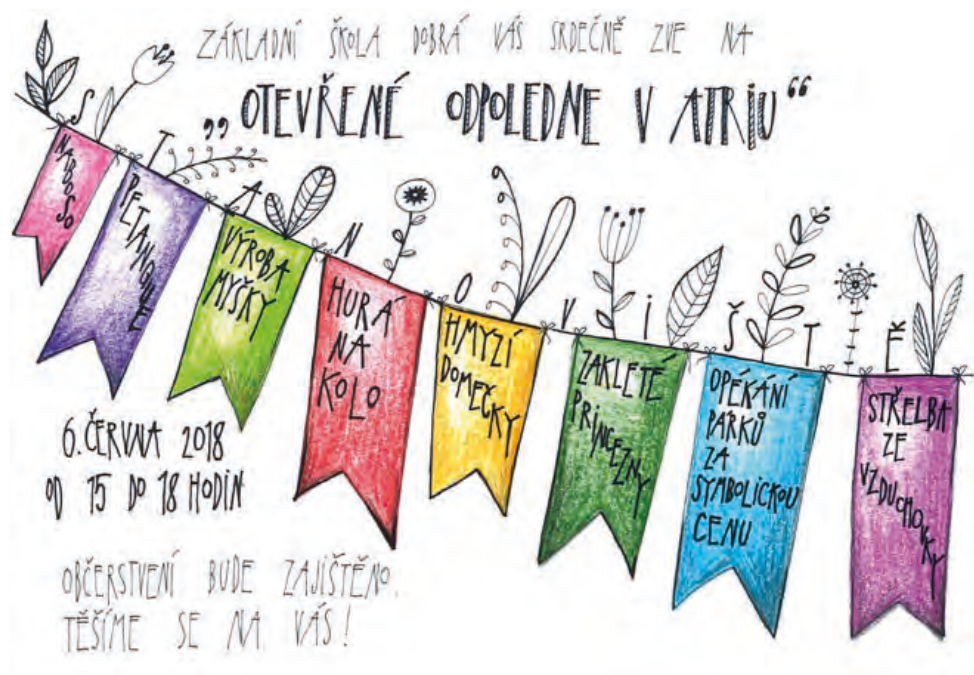 ZÁKLADNÍ ŠKOLA DOBRÁ VÁS SRDEČNĚ ZVE NA
„OTEVŘENÉ ODPOLEDNE V ATRIU“
STANOVIŠTĚ
NABOSO
PÉTANQUE
VÝROBA
MYŠKY
HURÁ
NA
KOLO
HMYZÍ
DOMEČKY
ZAKLETÉ
PRINCEZNY
OPÉKÁNÍ
PÁRKŮ
ZA
SYMBOLICKOU
CENU
STŘELBA
ZE
VZDUCHOVKY
6. ČERVNA 2018
OD 15 DO 18 HODIN
OBČERSTVENÍ BUDE ZAJIŠTĚNO.
TĚŠÍME SE NA VÁS!